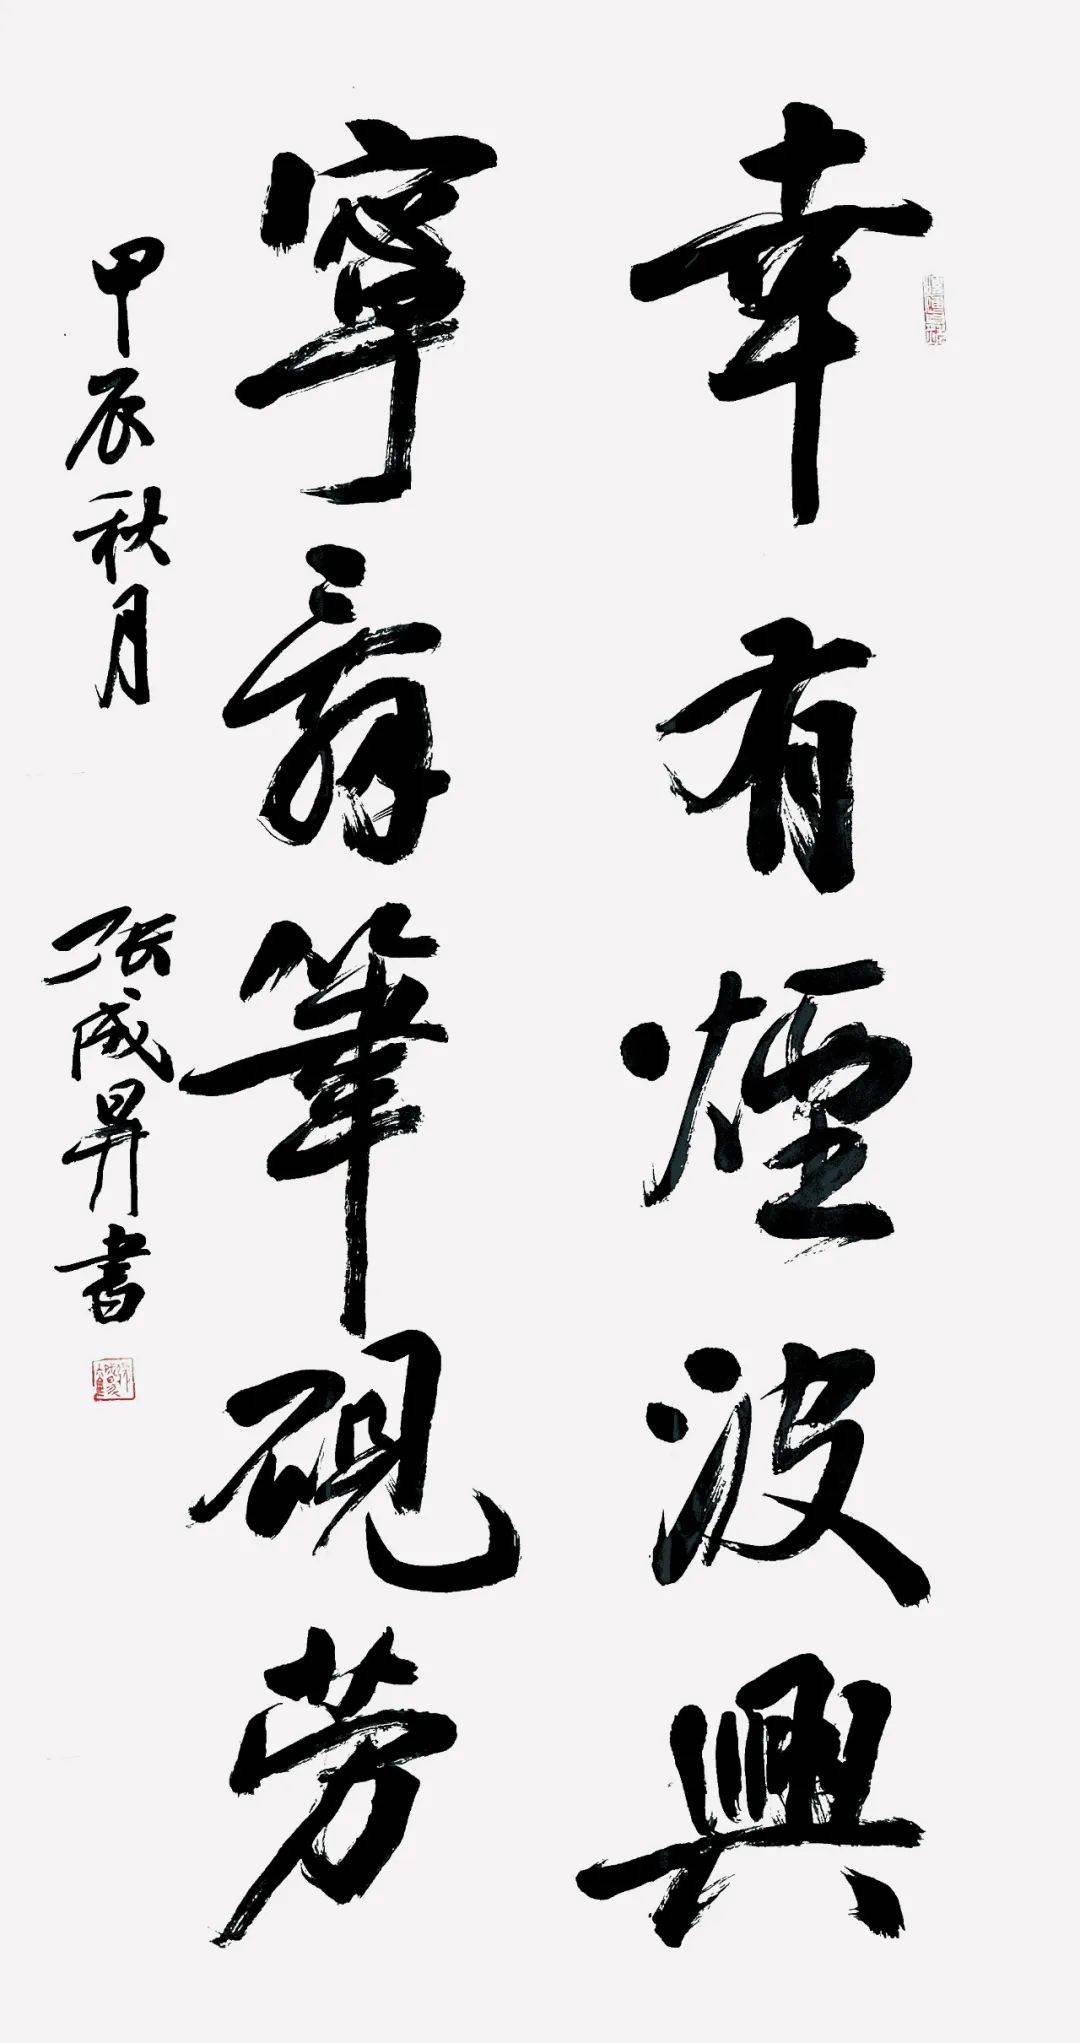 幸有煙波興
寧辭筆硯勞
甲辰秋月 張成昇書